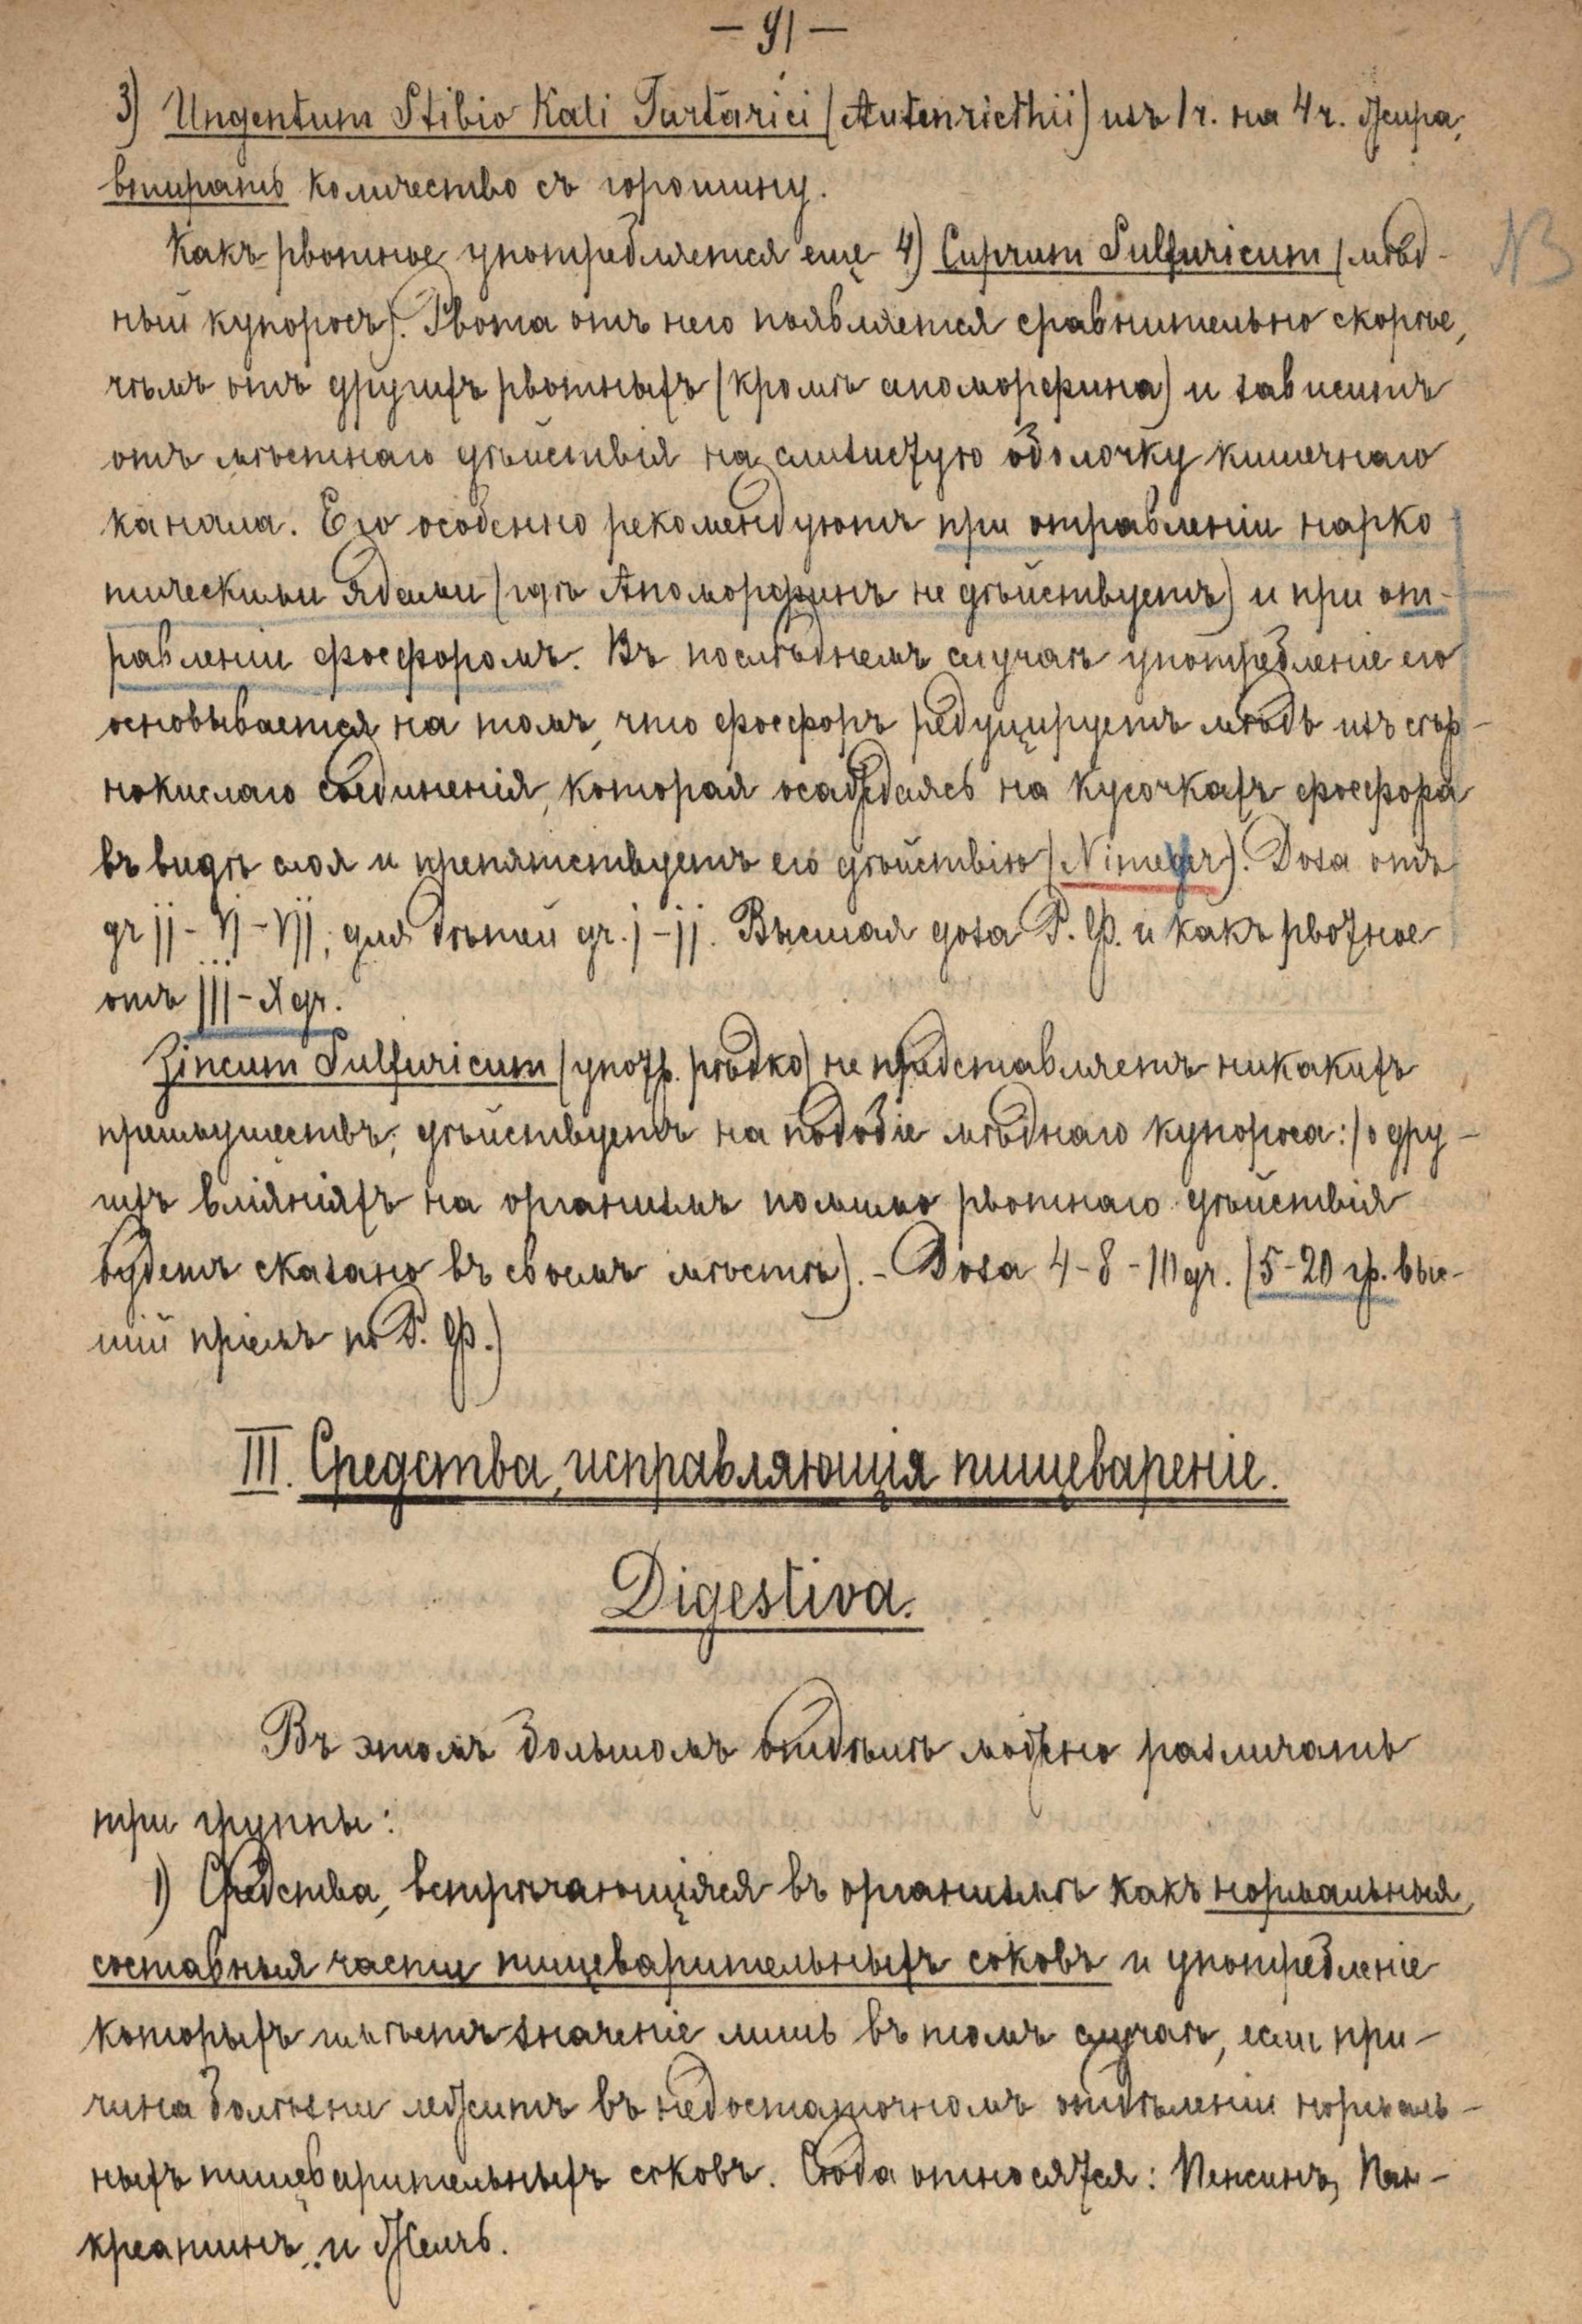 — 91 —
3) Ungentum Stibio Kali Tartarici (Autenriethii) изъ 1 ч. на 4 ч. жира,
втирать количество съ горошину.
Какъ рвотное употребляется еще 4) Cuprum Sulfuricum (мѣд-
NB
ный купоросъ). Рвота отъ него появляется сравнительно скорѣе,
чѣмъ отъ другихъ рвотныхъ (кромѣ апоморфина) и зависитъ
отъ мѣстнаго дѣйствія на слизистую оболочку кишечнаго
канала. Его особенно рекомендуютъ при отравленіи нарко
тическими ядами (гдѣ Апоморфинъ не дѣйствуетъ) и при от-
равленіи фосфоромъ. Въ послѣднемъ случаѣ употребленіе его
основывается на томъ, что фосфоръ редуцируетъ мѣдь изъ сѣр-
нокислаго соединенія, которая осаждаясь на кусочкахъ фосфора
въ видѣ слоя и препятствуетъ его дѣйствію (Nimeyer). Доза отъ
gr jj - vj - vjj, для дѣтей gr. j - jj. Высшая доза Р. Ф. и какъ рвотное
отъ jjj - X gr.
Zincum Sulfuricum (употр. рѣдко) не представляетъ никакихъ
преимуществъ; дѣйствуетъ на подобіе мѣднаго купороса: (о дру-
гихъ вліяніяхъ на организмъ помимо рвотнаго дѣйствія
будетъ сказано въ своемъ мѣстѣ). - Доза 4 - 8 - 10 gr. (5 - 20 гр. выс-
шій пріемъ по Р. Ф.)
III. Средства, исправляющія пищевареніе.
Digestiva.
Въ этомъ большомъ отдѣлѣ можно различать
три группы:
1) Средства, встрѣчающіяся въ организмѣ какъ нормальныя
составныя части пищеварительныхъ соковъ и употребленіе
которыхъ имѣетъ значеніе лишь въ томъ случаѣ, если при-
чина болѣзни лежитъ въ недостаточномъ отдѣленіи нормаль-
ныхъ пищеварительныхъ соковъ. Сюда относятся: Пепсинъ, Пан-
креатинъ и Желчь.